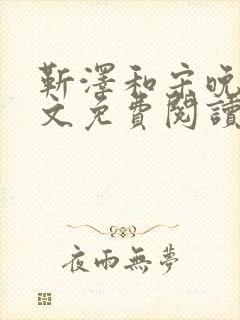 靳澤和宋晚
文免費閱讀
夜雨無夢